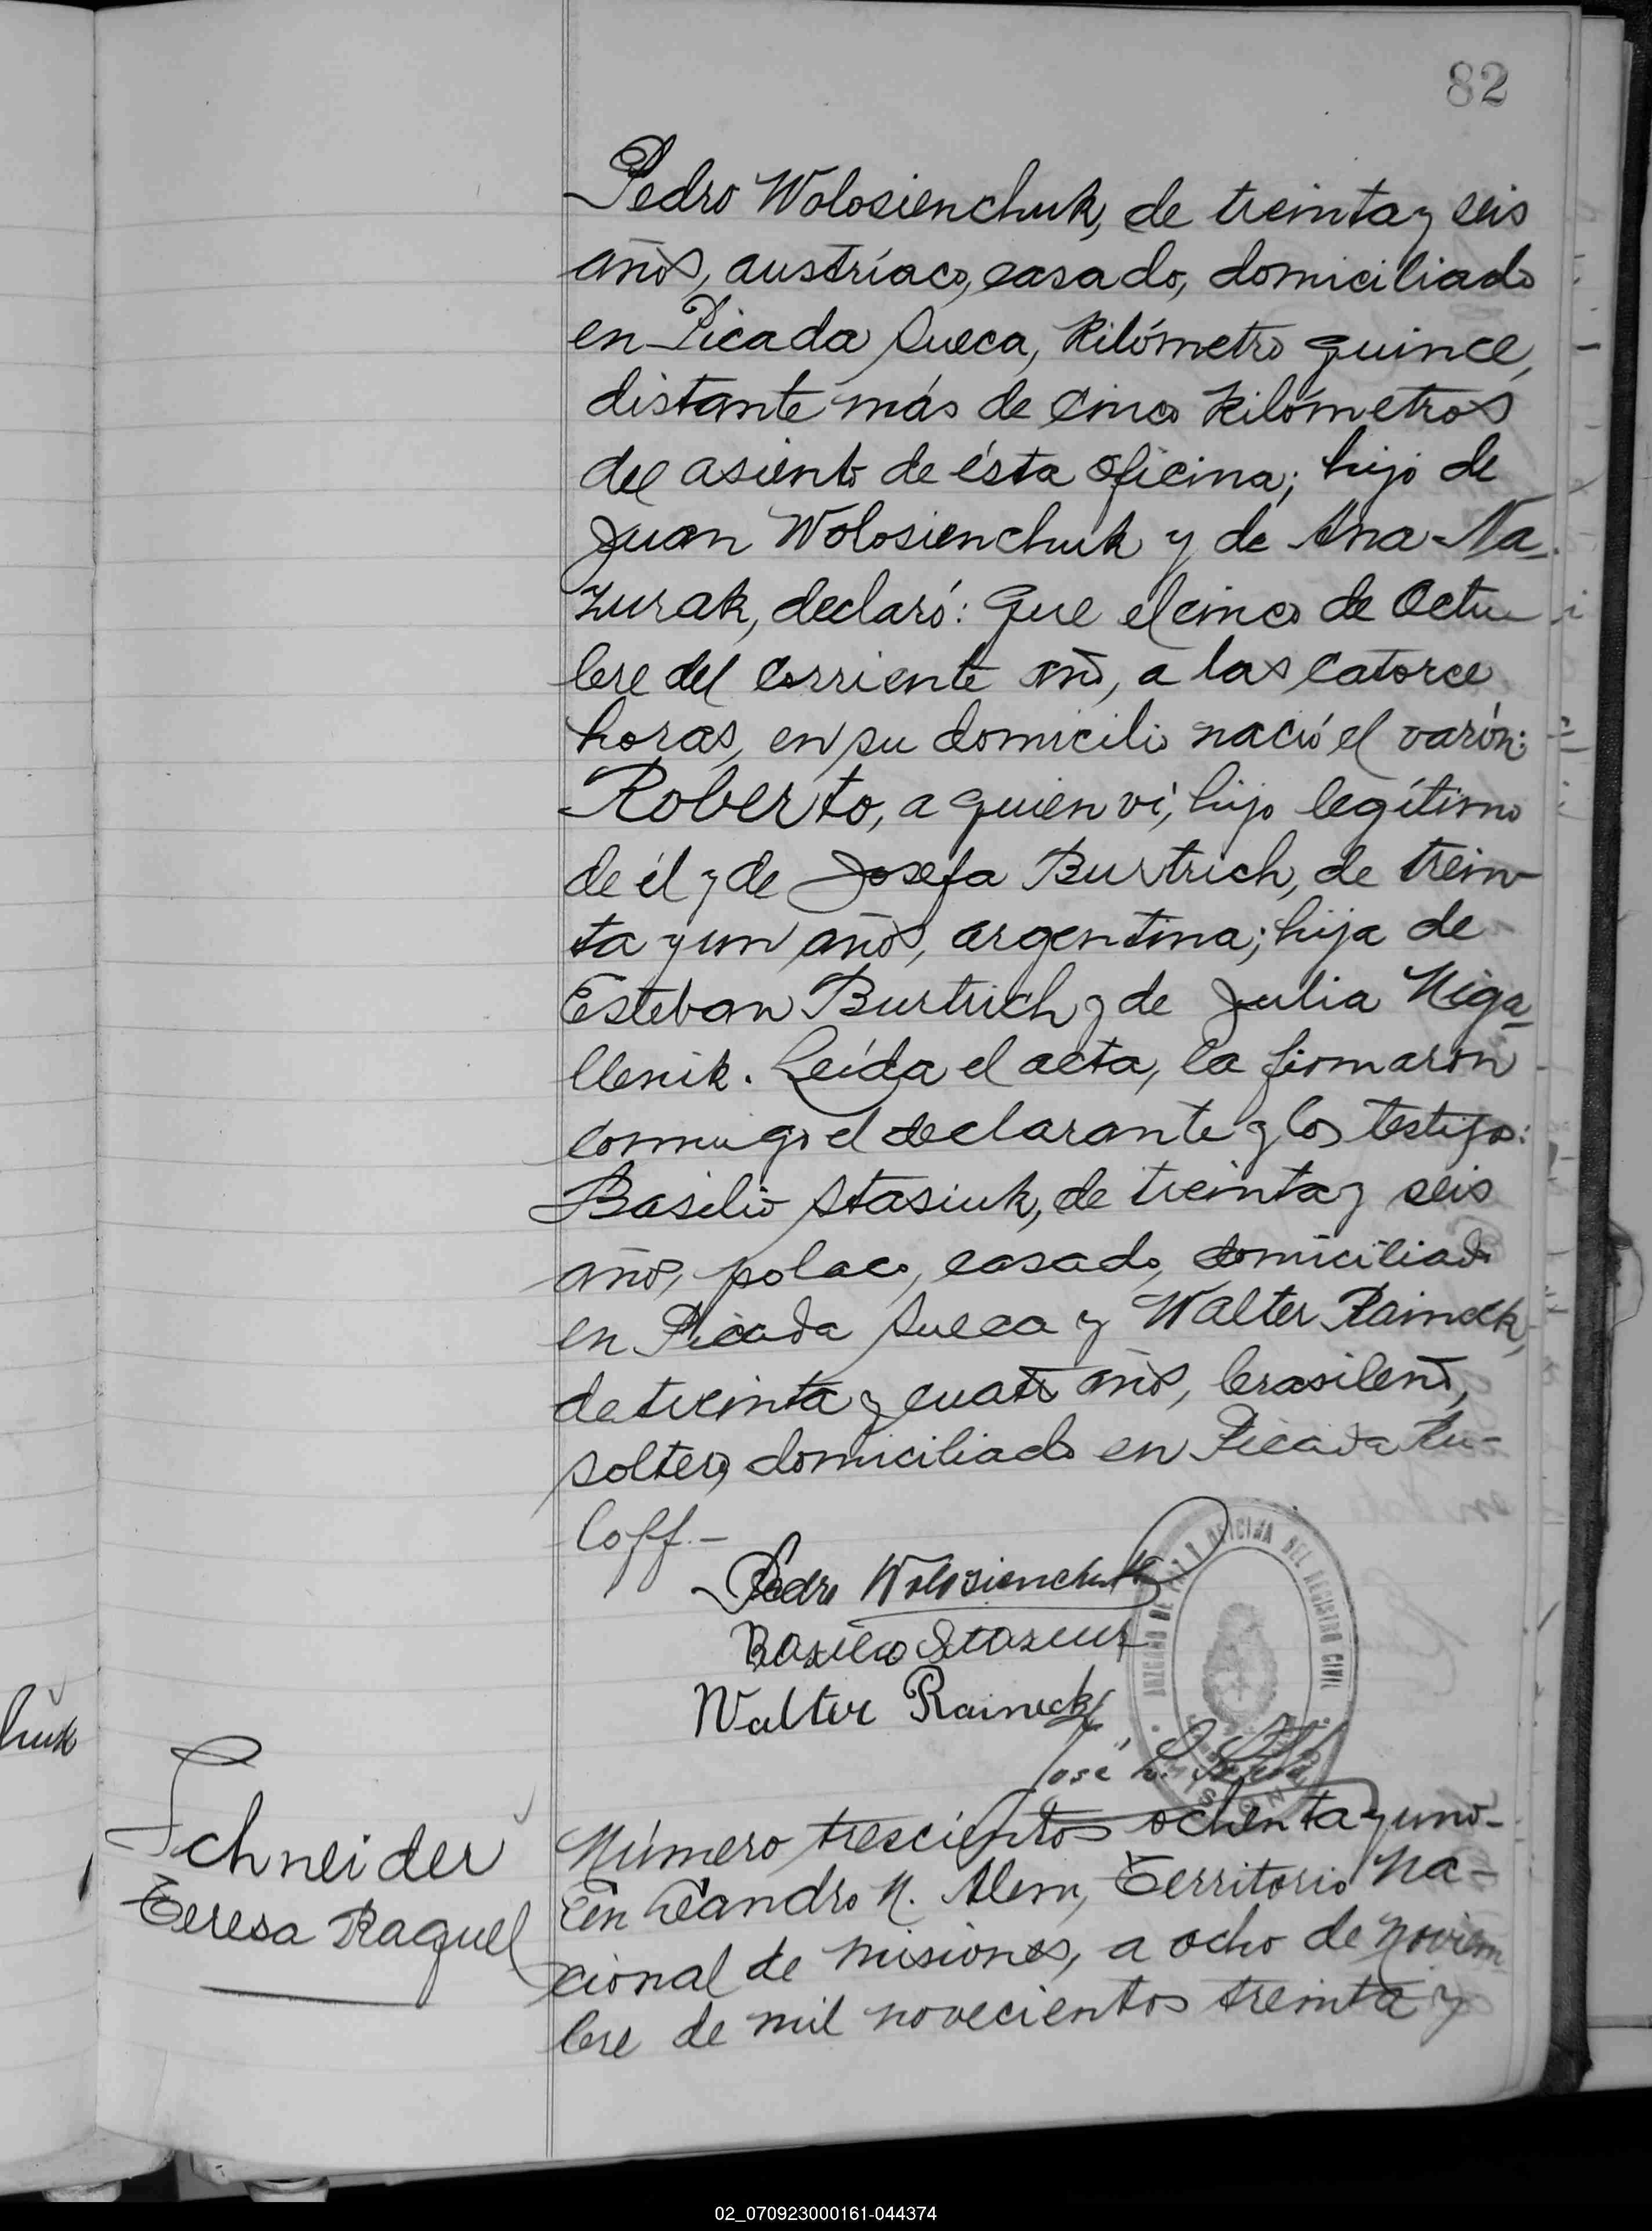 82
Pedro Wolosienchuk, de treinta y seis
años, austríaco, casado, domiciliado
en Picada Sueca, Kilómetro quince,
distante más de cinco kilómetros
del asiento de ésta oficina; hijo de
Juan Wolosienchuk y de Ana Na-
zurak, declaró: Que el cinco de Octu-
bre del corriente año, a las catorce
horas, en su domicilio nació el varón:
Roberto, a quien ví, hijo legítimo
de él y de Josefa Burtrich, de trein-
ta y un años, argentina; hija de
Esteban Burtrich y de Julia Niga-
llenik. Leída el acta, la firmaron
conmigo el declarante y los testigos:
Basilio Stasiuk, de treinta y seis
años, polaco, casado, domiciliado
en Picada Sueca y Walter Raineck,
de treinta y cuatro años, brasileño,
soltero, domiciliado en Picada Lu-
loff.-
Pedro Wolosienchuk
Basilio
Walter Raineck
JUZGADO DE PAZ Y OFICINA DEL REGISTRO CIVIL
MISIONES
José
huk
Schneider
Teresa Raquel
Número trescientos ochenta y uno-
En Leandro N. Alem, Territorio Na-
cional de Misiones, a ocho de Noviem
bre de mil novecientos treinta y
02_070923000161-044374